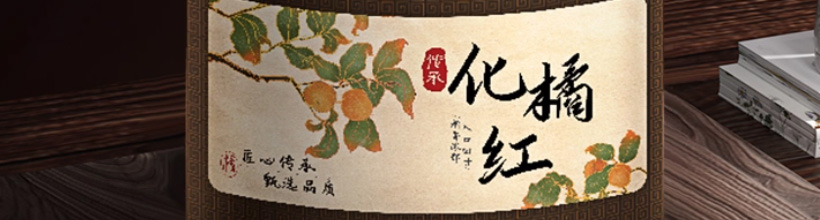 化橘
红
传承
匠心传承
甄选品质